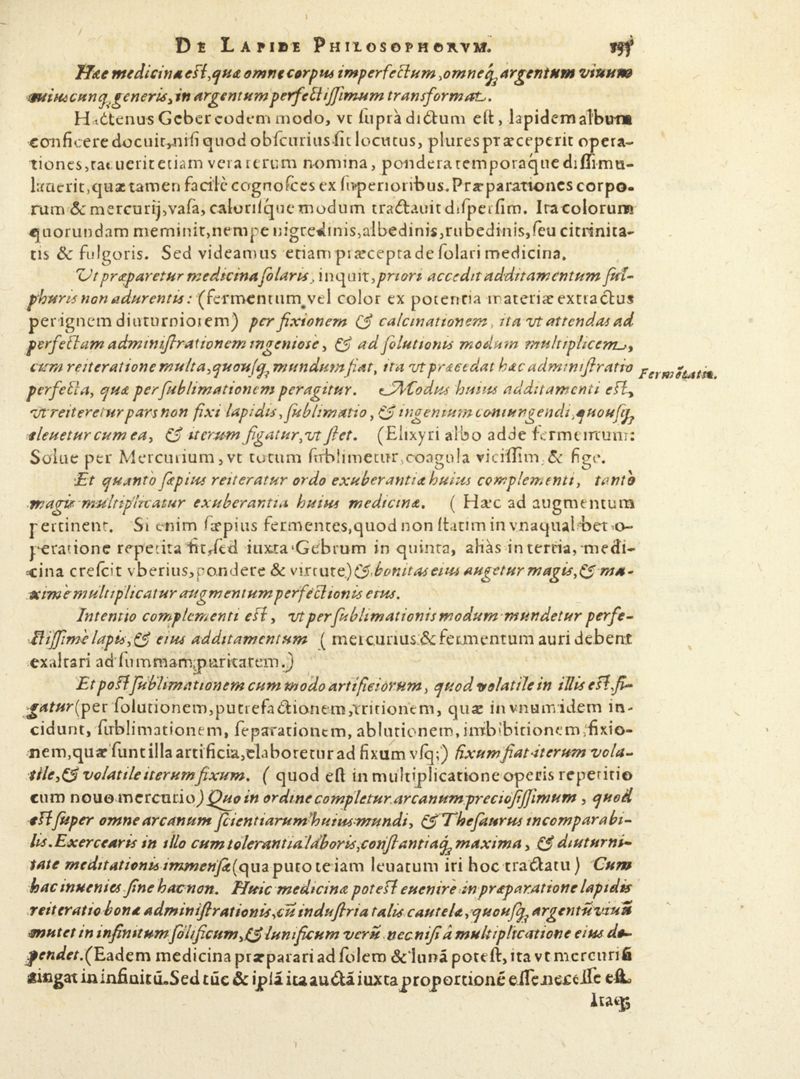 DE LAPIDE PHILOSOPHORVM.
Hæc medicina est, quæ omne corpus imperfectum, omneq́; argentum viuum
cuiuscunq; generis, in argentum perfectissimum transformat.
Hactenus Geber eodem modo, vt suprà dictum est, lapidem album
conficere docuit, nisi quod obscurius sit locutus, plures præceperit opera-
tiones, tacuerit etiam vera rerum nomina, pondera temporaque dissimu-
lauerit, quæ tamen facilè cognosces ex superioribus. Præparationes corpo-
rum & mercurij, vasa, calorisque modum tractauit dispersim. Ita colorum
quorundam meminit, nempe nigredinis, albedinis, rubedinis, seu citrinita-
tis & fulgoris. Sed videamus etiam præcepta de solari medicina.
Vt præparetur medicina solaris, inquit, priori accedit additamentum sul-
phuris non adurentis: (fermentum vel color ex potentia materiæ extractus
per ignem diuturniorem) per fixionem & calcinationem, ita vt attendas ad
perfectam administrationem ingeniose, & ad solutionis modum multiplicem,
cum reiteratione multa, quousq; mundum fiat, ita vt præcedat hæc administratio
Fermētatiō.
perfecta, quæ per sublimationem peragitur. Modus huius additamenti est,
vt reiteretur pars non fixi lapidis, sublimatio, & ingenium coniungendi, quousq;
eleuetur cum ea, & iterum figatur, vt stet. (Elixyri albo adde fermentum:
Solue per Mercurium, vt totum sublimetur, coagula vicissim, & fige.
Et quanto sæpius reiteratur ordo exuberantiæ huius complementi, tanto
magis multiplicatur exuberantia huius medicinæ. ( Hæc ad augmentum
pertinent. Si enim sæpius fermentes, quod non statim in vna qualibet o-
peratione repetita fit, sed iuxta Gebrum in quinta, aliàs in tertia, medi-
cina crescit vberius, pondere & virtute) & bonitas eius augetur magis, & ma-
xime multiplicatur augmentum perfectionis eius.
Intentio complementi est, vt per sublimationis modum mundetur perfe-
ctissimè lapis, & eius additamentum ( mercurius & fermentum auri debent
exaltari ad summam puritatem.)
Et post sublimationem cum modo artificiorum, quod volatile in illis est, fi-
gatur (per solutionem, putrefactionem, tritionem, quæ in vnum idem in-
cidunt, sublimationem, separationem, ablutionem, imbibitionem, fixio-
nem, quæ sunt illa artificia, elaboretur ad fixum vsq;) fixum fiat iterum vola-
tile, & volatile iterum fixum. ( quod est in multiplicatione operis repetitio
cum nouo mercurio) Quo in ordine completur arcanum preciosissimum, quod
est super omne arcanum scientiarum huius mundi, & Thesaurus incomparabi-
lis. Exercearis in illo cum tolerantia laboris, constantiaq́; maxima, & diuturni-
tate meditationis immensa (qua puto te iam leuatum iri hoc tractatu) Cum
hac inuenies sine hac non. Huic medicinæ potest euenire in præparatione lapidis
reiteratio bonæ administrationis, cũ industria talis cautelæ, quousq; argentũ viuũ
mutet in infinitum solificum, & lunificum verũ nec nisi à multiplicatione eius de-
pendet. (Eadem medicina præparari ad solem & lunã potest, ita vt mercuriũ
tingat in infinitũ. Sed tũc & ipsã ita auctã iuxta proportionẽ esse necesse est.
Itaq;